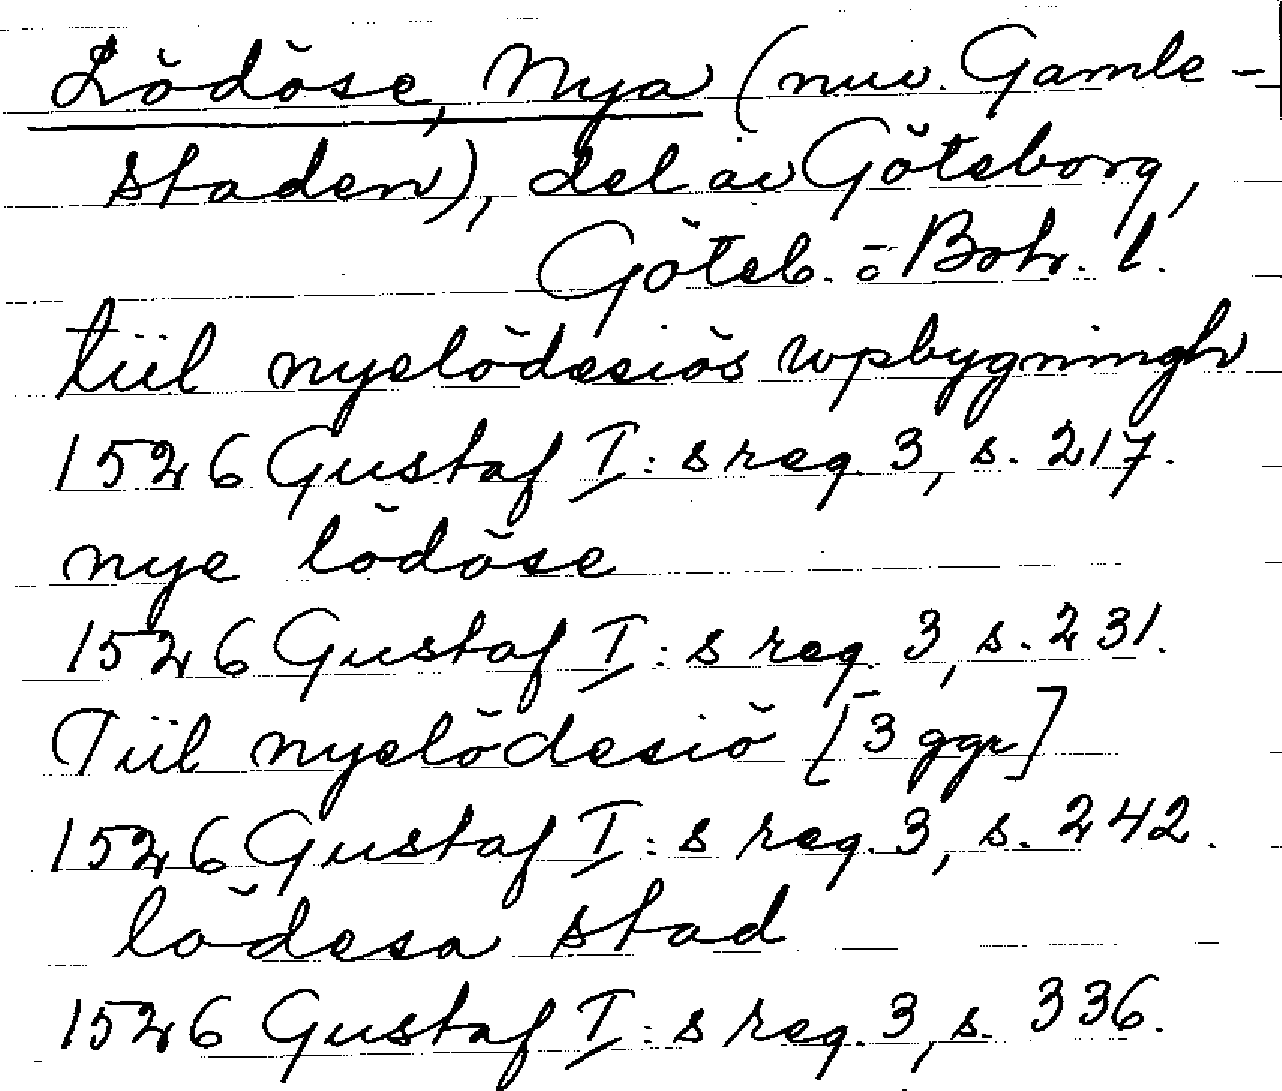 Lödöse, Nya (nuv. Gamle-
staden), del av Göteborg,
Göteb. o Boh. l.
tiil nyelödesiös wpbygningh
1526 Gustaf I:s reg. 3, s. 217.
nye lödöse
1526 Gustaf I:s reg. 3, s. 231.
Tiil nyelödesiö [3 ggr]
1526 Gustaf I:s reg. 3, s. 242.
lödesa stad
1526 Gustaf I:s reg. 3, s. 336.